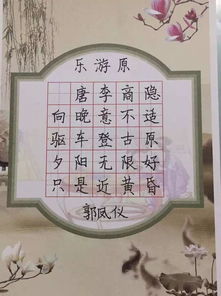 乐游原
唐李商隐
向晚意不适
驱车登古原
夕阳无限好
只是近黄昏
郭凤仪